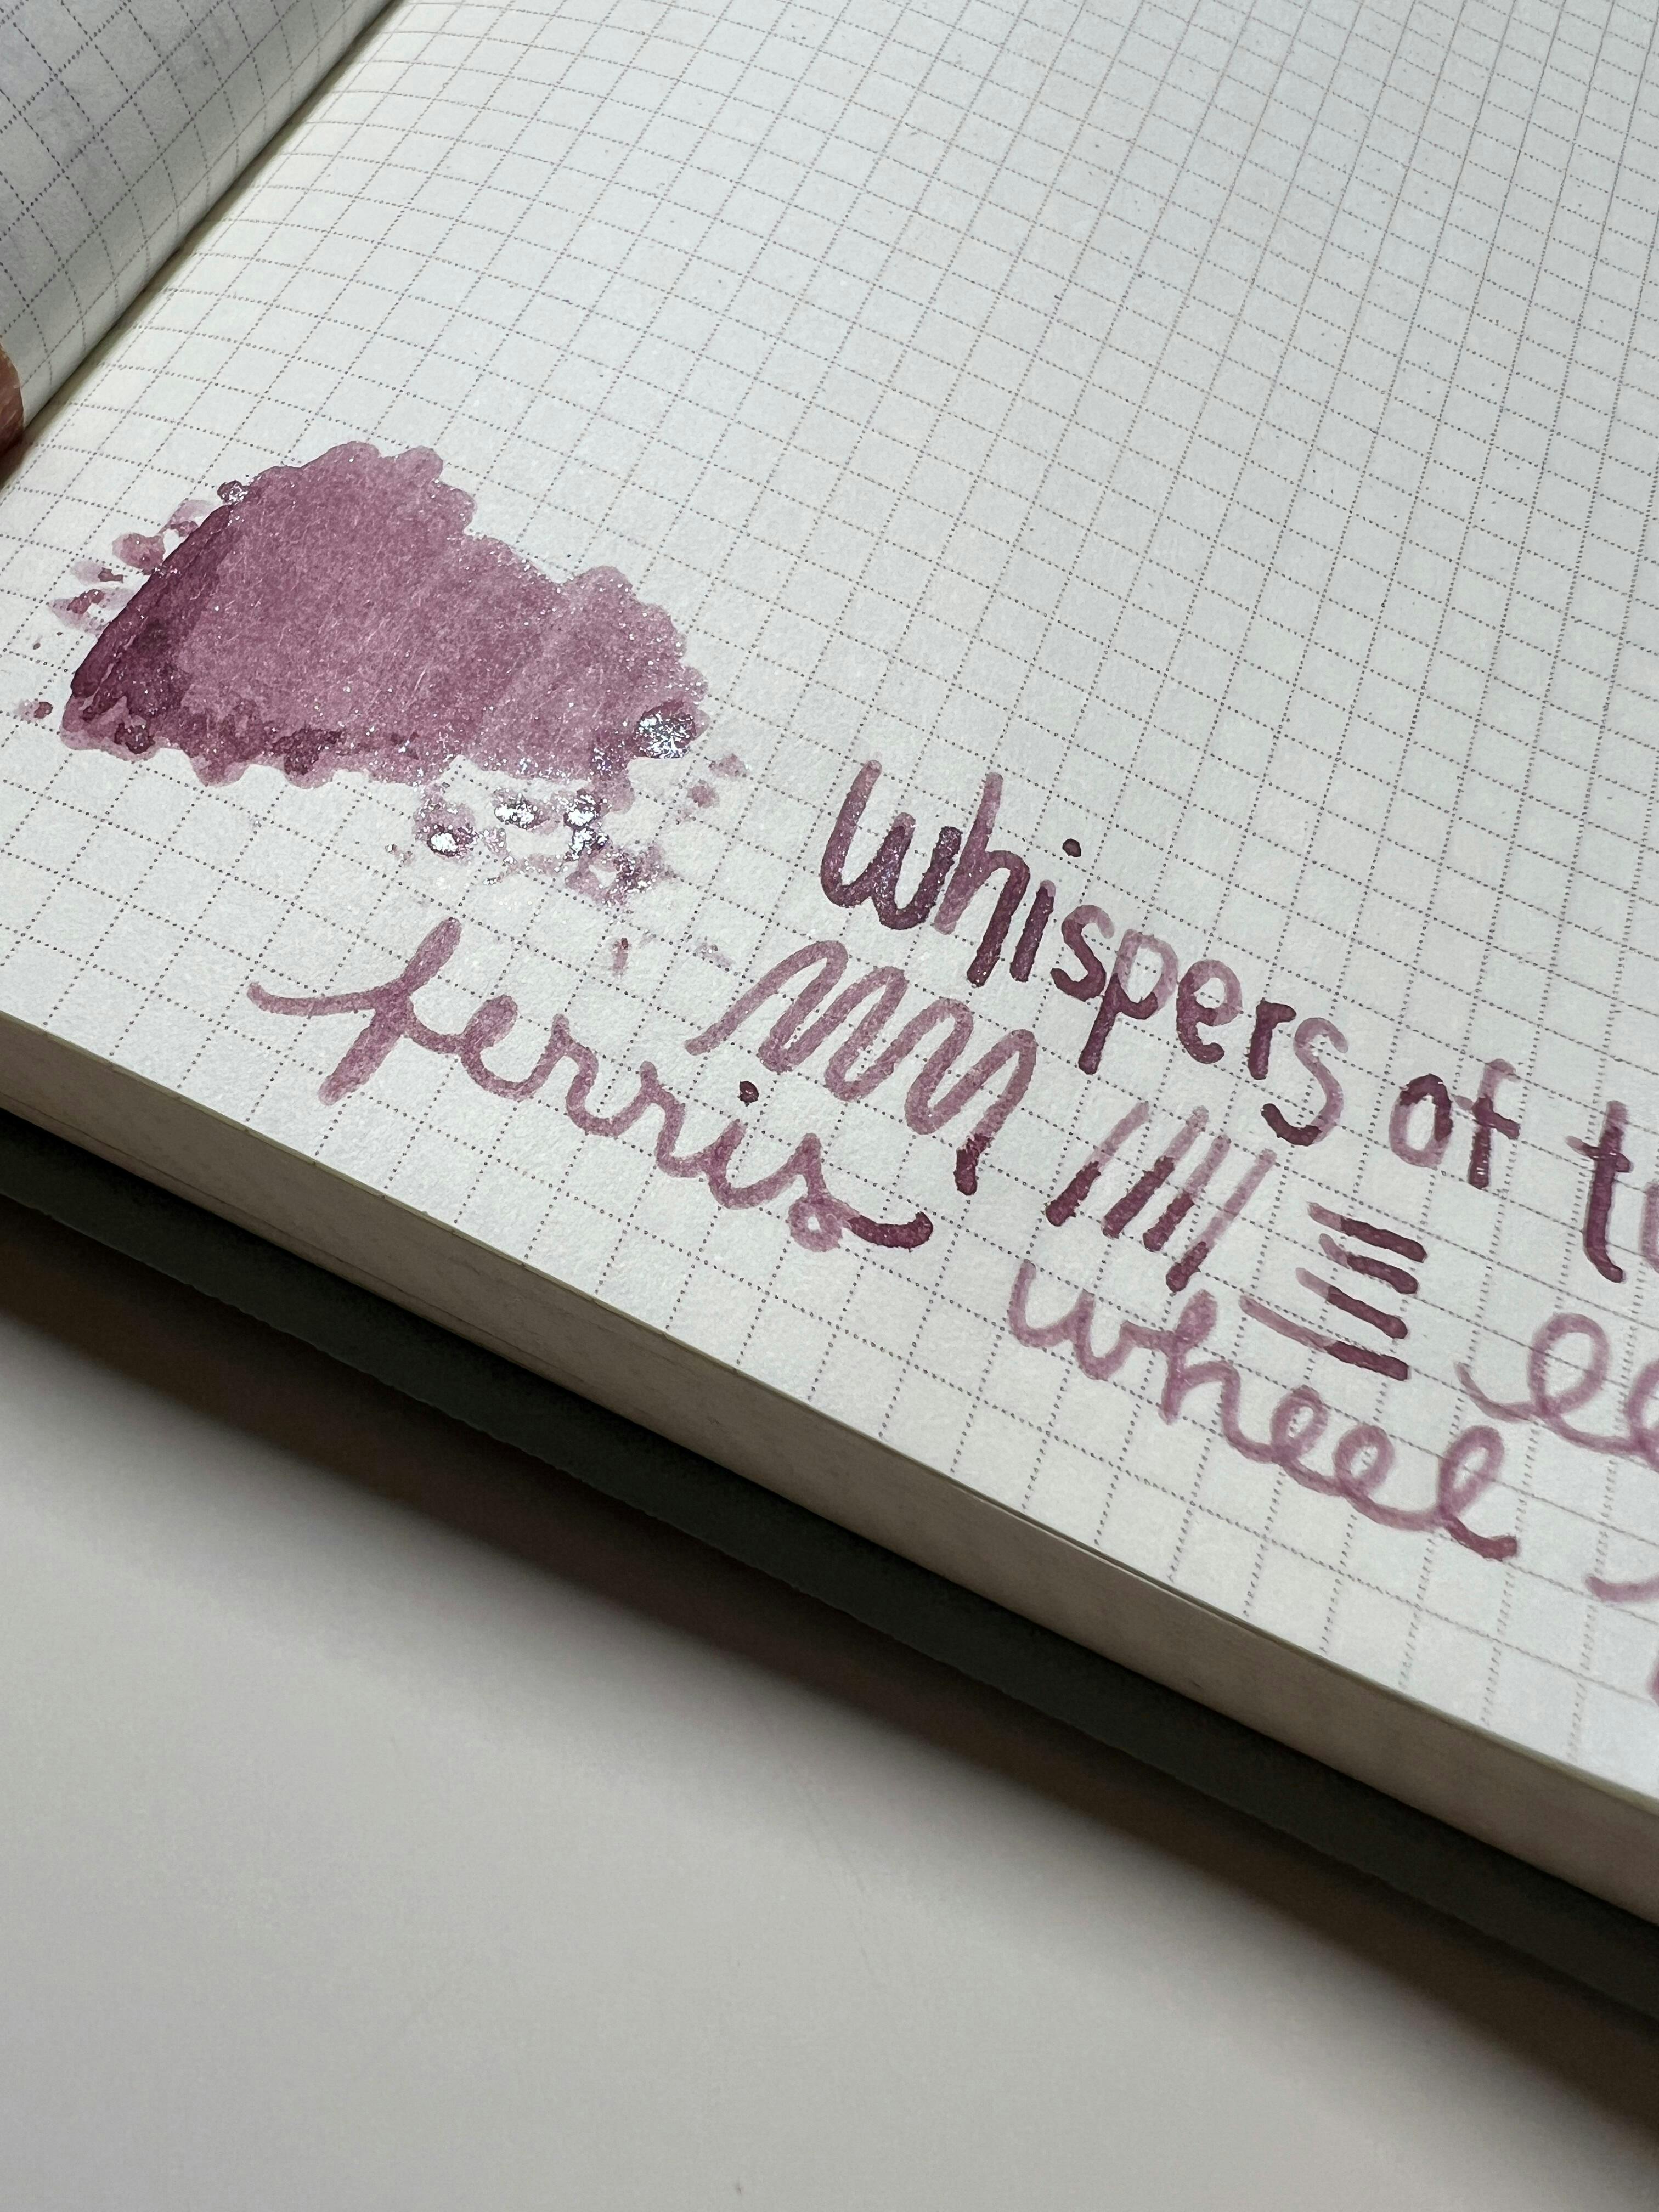 whispers of
ferris wheel